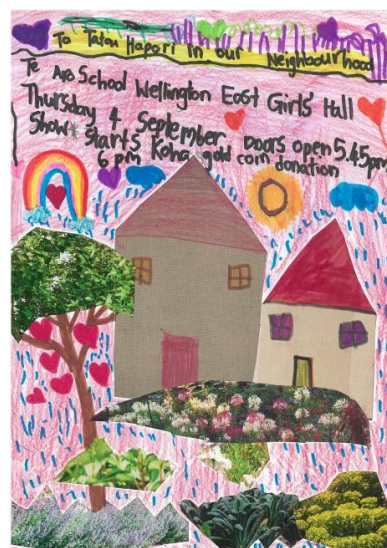 To Tatou Hapori In our Neighbourhood
Te Aro School Wellington East Girls' Hall
Thursday 4 September Doors open 5.45pm
Show starts Koha gold coin donation
6 pm